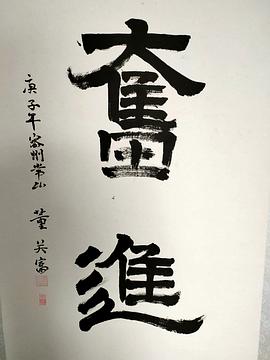 奮進
庚子年 州常山 董 富